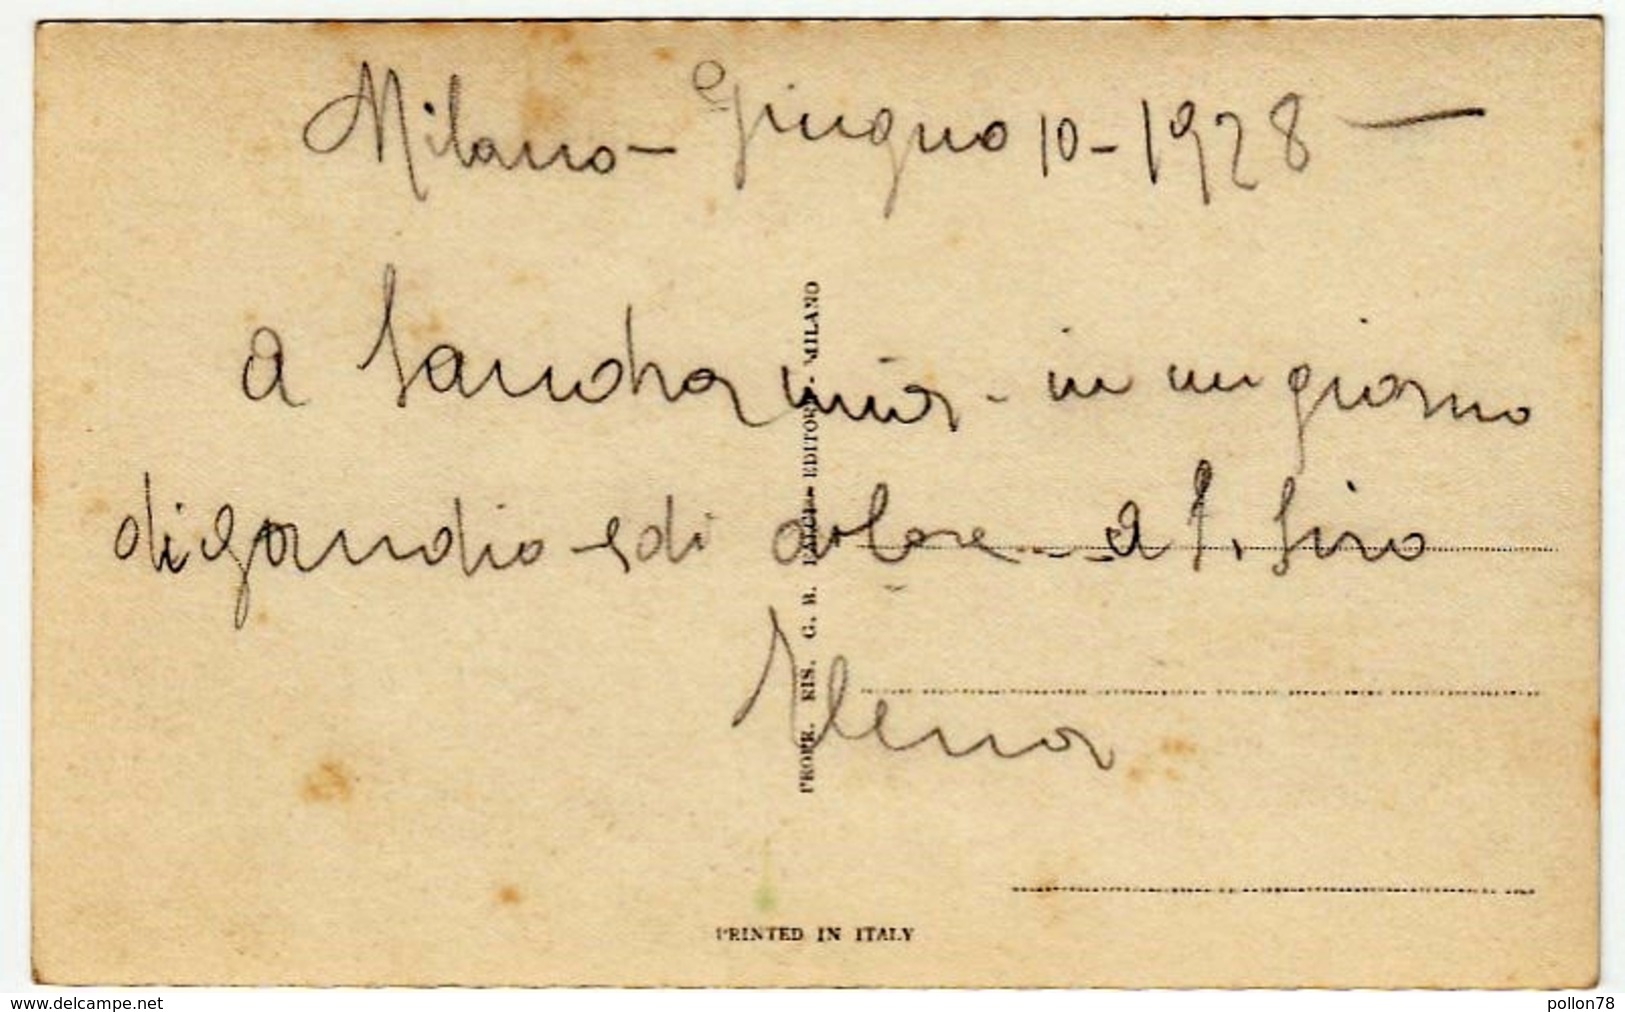 Milano - Giugno 10 - 1928 —
a Sandra mia - in un giorno
di gaudio e di dolore - a S. Siro
Elena
PROPR. RIS. G. B. FALCI - EDITORE - MILANO
PRINTED IN ITALY
www.delcampe.net
pollon78